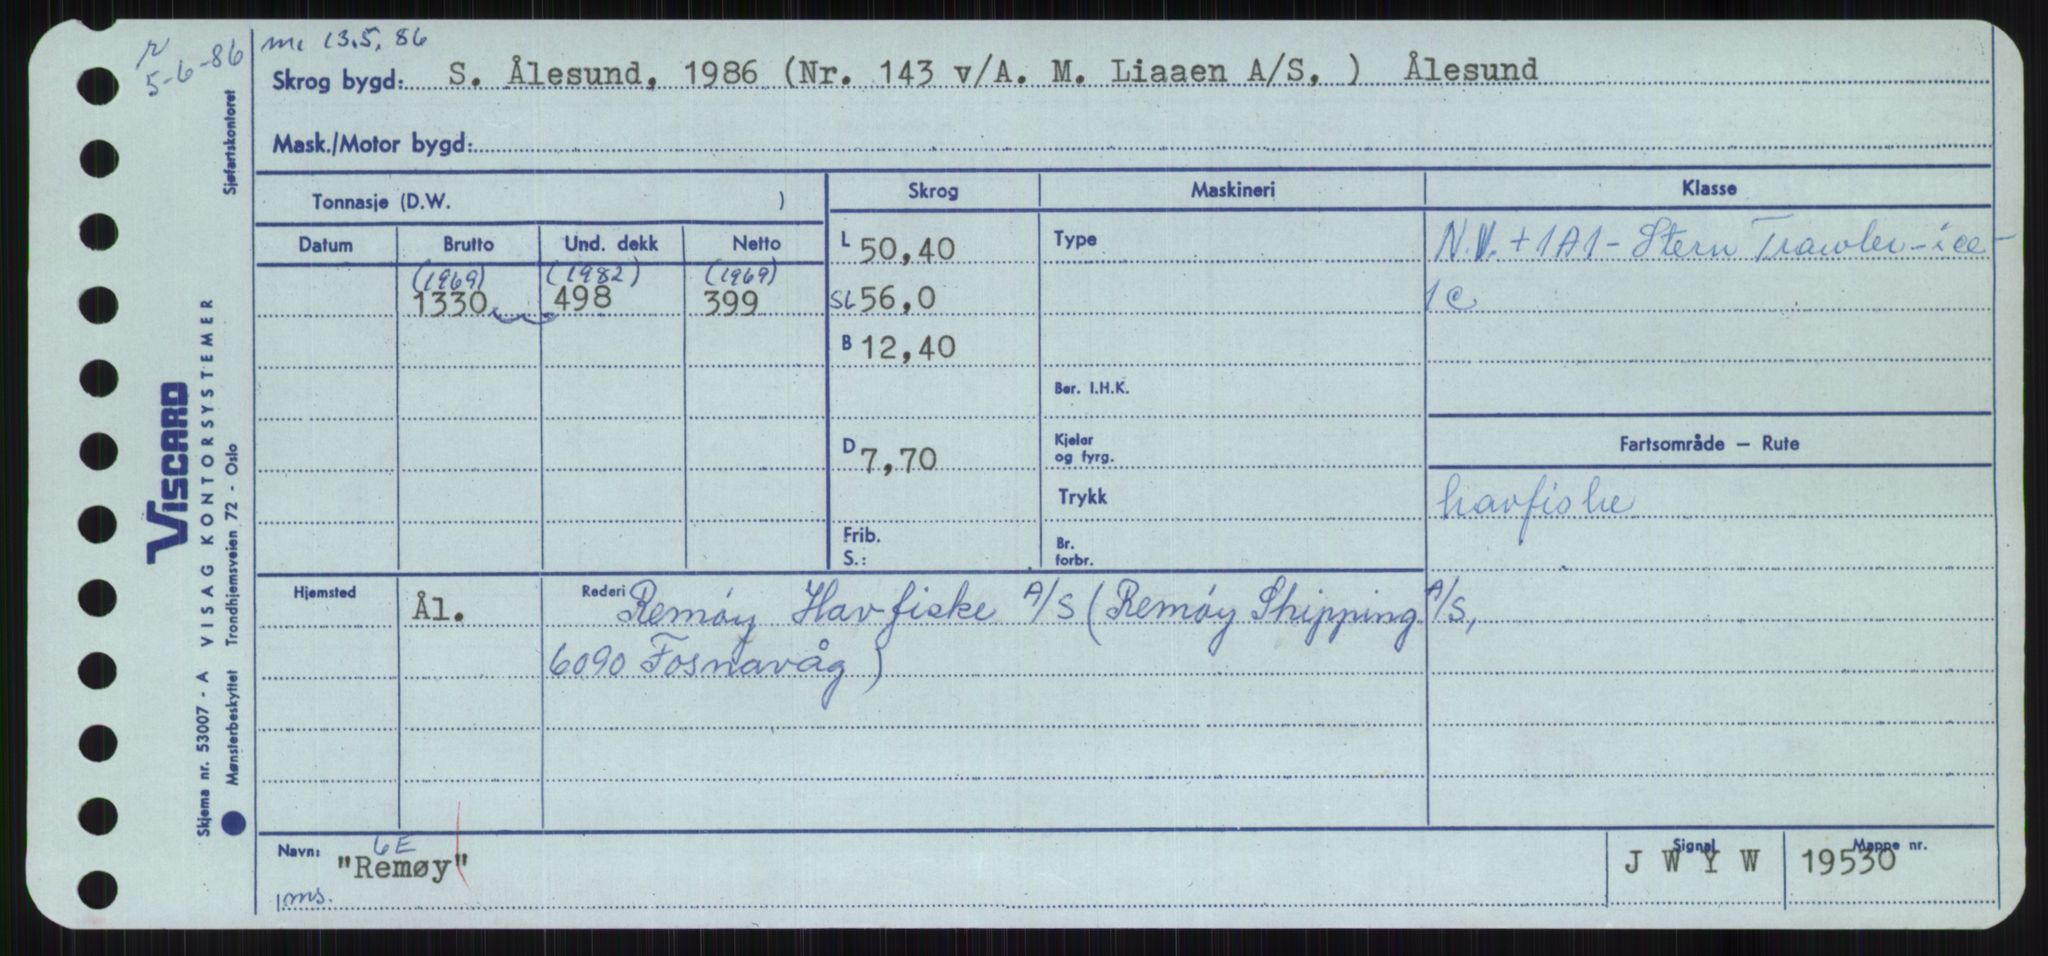 r
5-6-86
m. 13.5.86
Skrog bygd: S. Ålesund, 1986 (Nr. 143 v/A. M. Liaaen A/S, ) Ålesund
Mask./Motor bygd:
Tonnasje (D.W. )
Skrog Maskineri Klasse
Datum Brutto Und. dekk Netto
(1969) (1982) (1969)
1330 498 399
L 50,40
SL 56,0
B 12,40
D 7,70
Frib.
S.:
Type
Ber. I.H.K.
Kjelar
og fyrg.
Trykk
Br.
forbr.
N.V. + 1A1 - Stern Trawler - ice -
1C
Fartsområde — Rute
havfiske
Hjemsted Ål.
Rederi Remøy Havfiske A/S (Remøy Shipping A/S,
6090 Fosnavåg)
Navn: 6E
"Remøy"
ms.
Signal J W Y W
Mappe nr. 19530
Sjøfartskontoret
VISCARD
VISAG KONTORSYSTEMER
Skjema nr. 53007 - A
Mønsterbeskyttet Trondhjemsveien 72 - Oslo